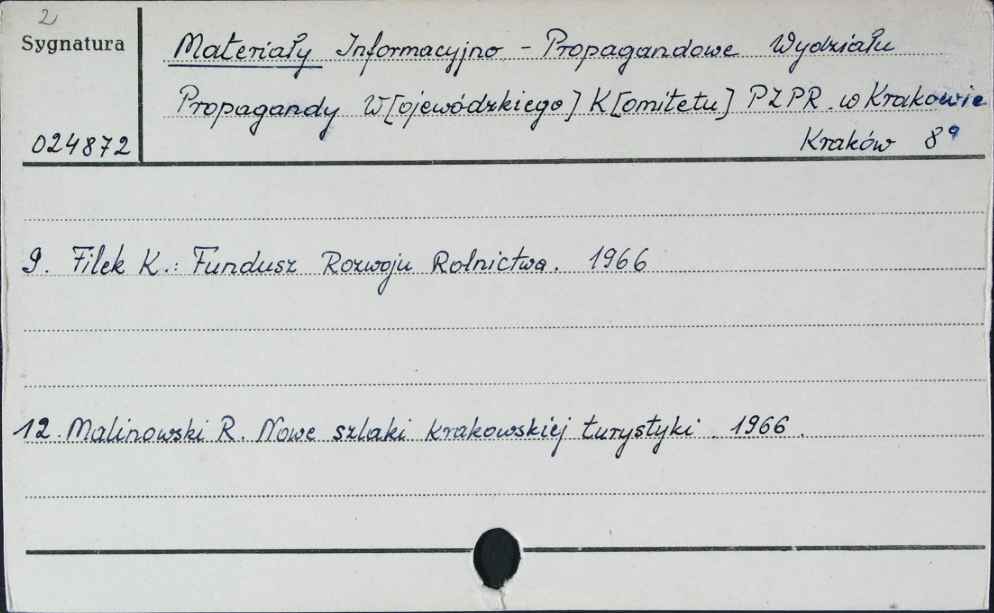 2
Sygnatura
Materiały Informacyjno - Propagandowe Wydziału
Propagandy W[ojewódzkiego] K[omitetu] PZPR. w Krakowie
024872
Kraków 8°
9. Filek K.: Fundusz Rozwoju Rolnictwa. 1966
12. Malinowski R. Nowe szlaki krakowskiej turystyki. 1966.